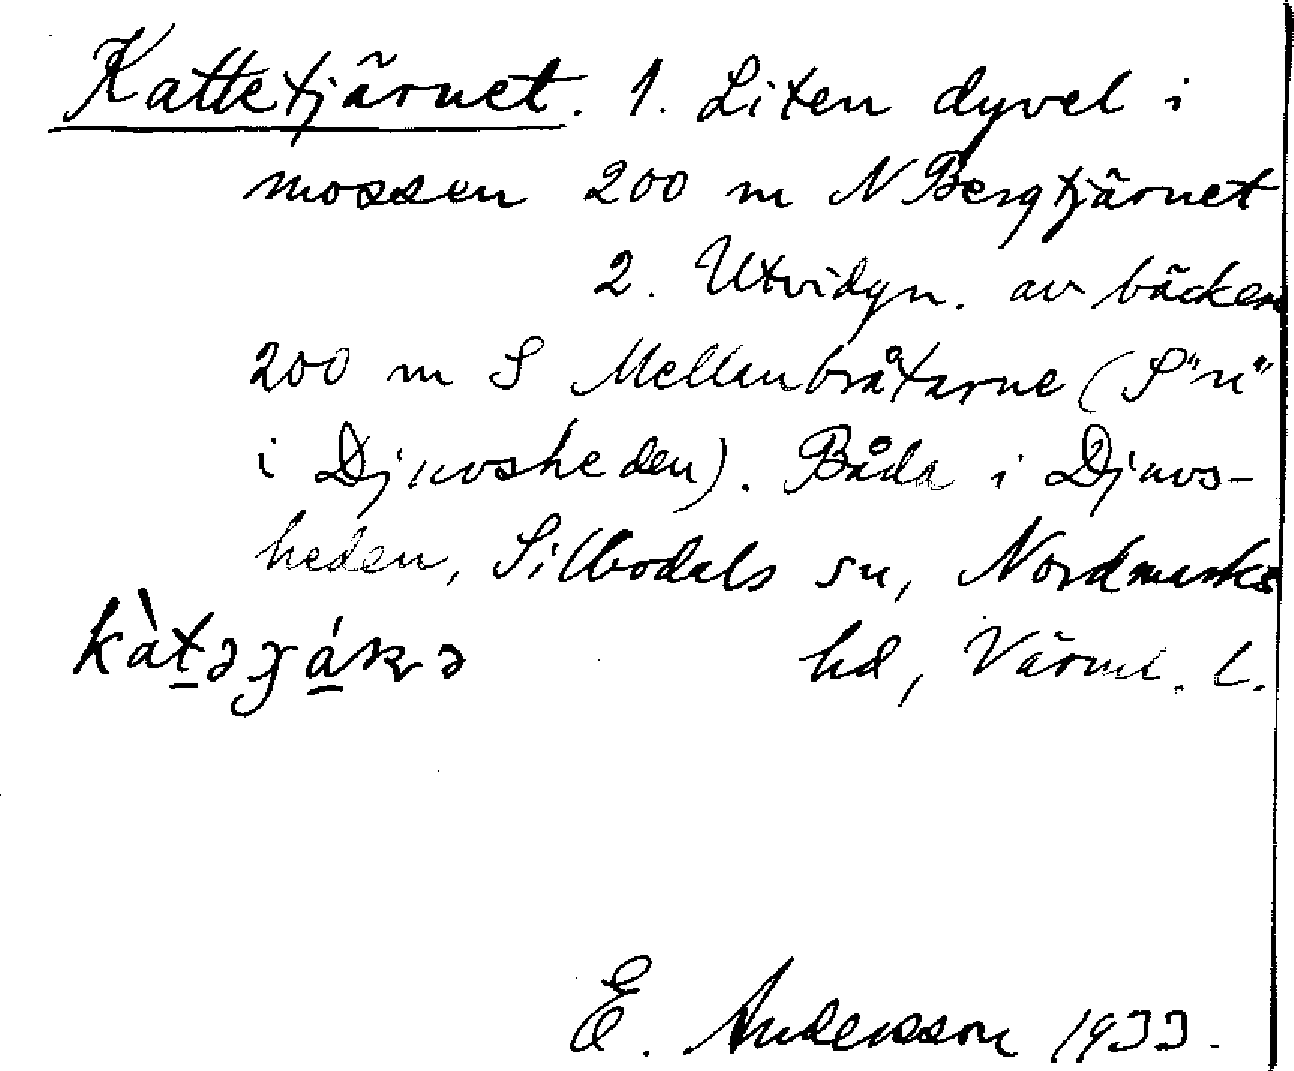 Kattetjärnet. 1. Liten dyvel i
mossen 200 m N Bergtjärnet
2. Utvidgn. av bäcken
200 m S Mellanbråtarne (S "n"
i Djuvsheden). Båda i Djuvs-
heden, Silbodals sn, Nordmarks
hd, Värml. l.
E. Andersson 1933.